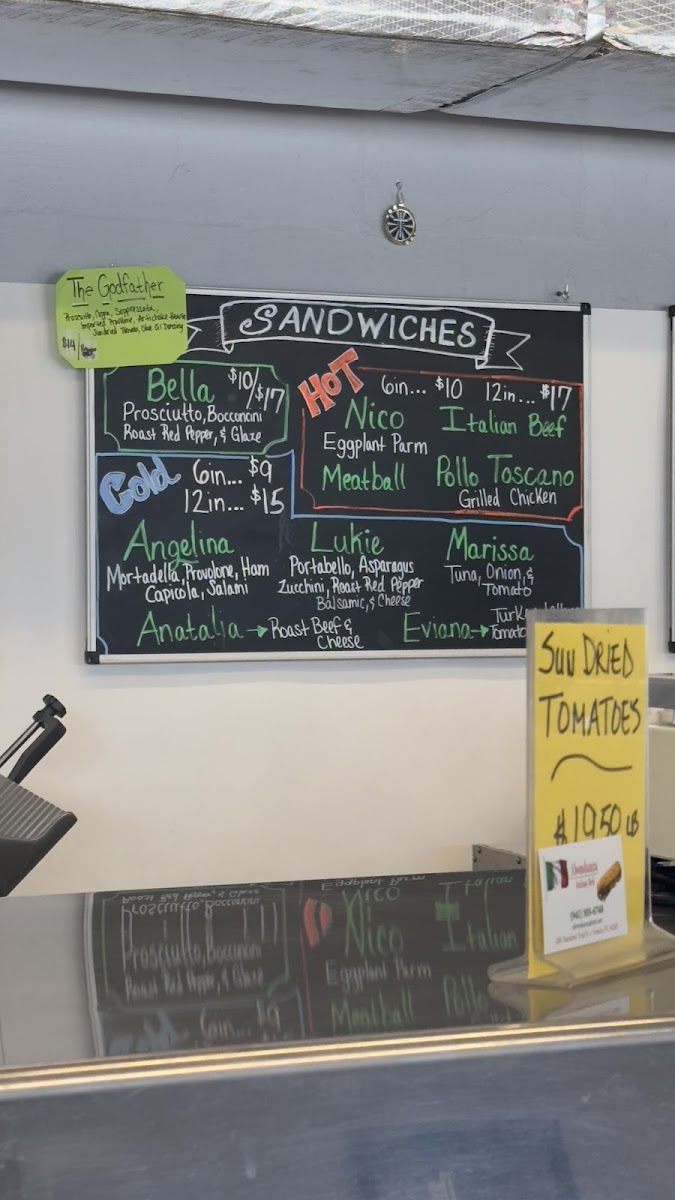 The Godfather
Prosciutto, Coppa, Soppressata,
Imported Provolone, Artichoke Hearts
Sundried Tomato, Olive Oil Dressing
$14
SANDWICHES
Bella $10/$17
Prosciutto, Bocconcini
Roast Red Pepper, & Glaze
HOT 6in... $10 12in... $17
Nico
Eggplant Parm
Italian Beef
Meatball
Pollo Toscano
Grilled Chicken
Cold 6in... $9
12in... $15
Angelina
Mortadella, Provolone, Ham
Capicola, Salami
Lukie
Portabello, Asparagus
Zucchini, Roast Red Pepper
Balsamic, & Cheese
Marissa
Tuna, Onion, &
Tomato
Anatalia → Roast Beef &
Cheese
Eviana →
Tomato
SUN DRIED
TOMATOE'S
$19.50 LB
Italian Deli